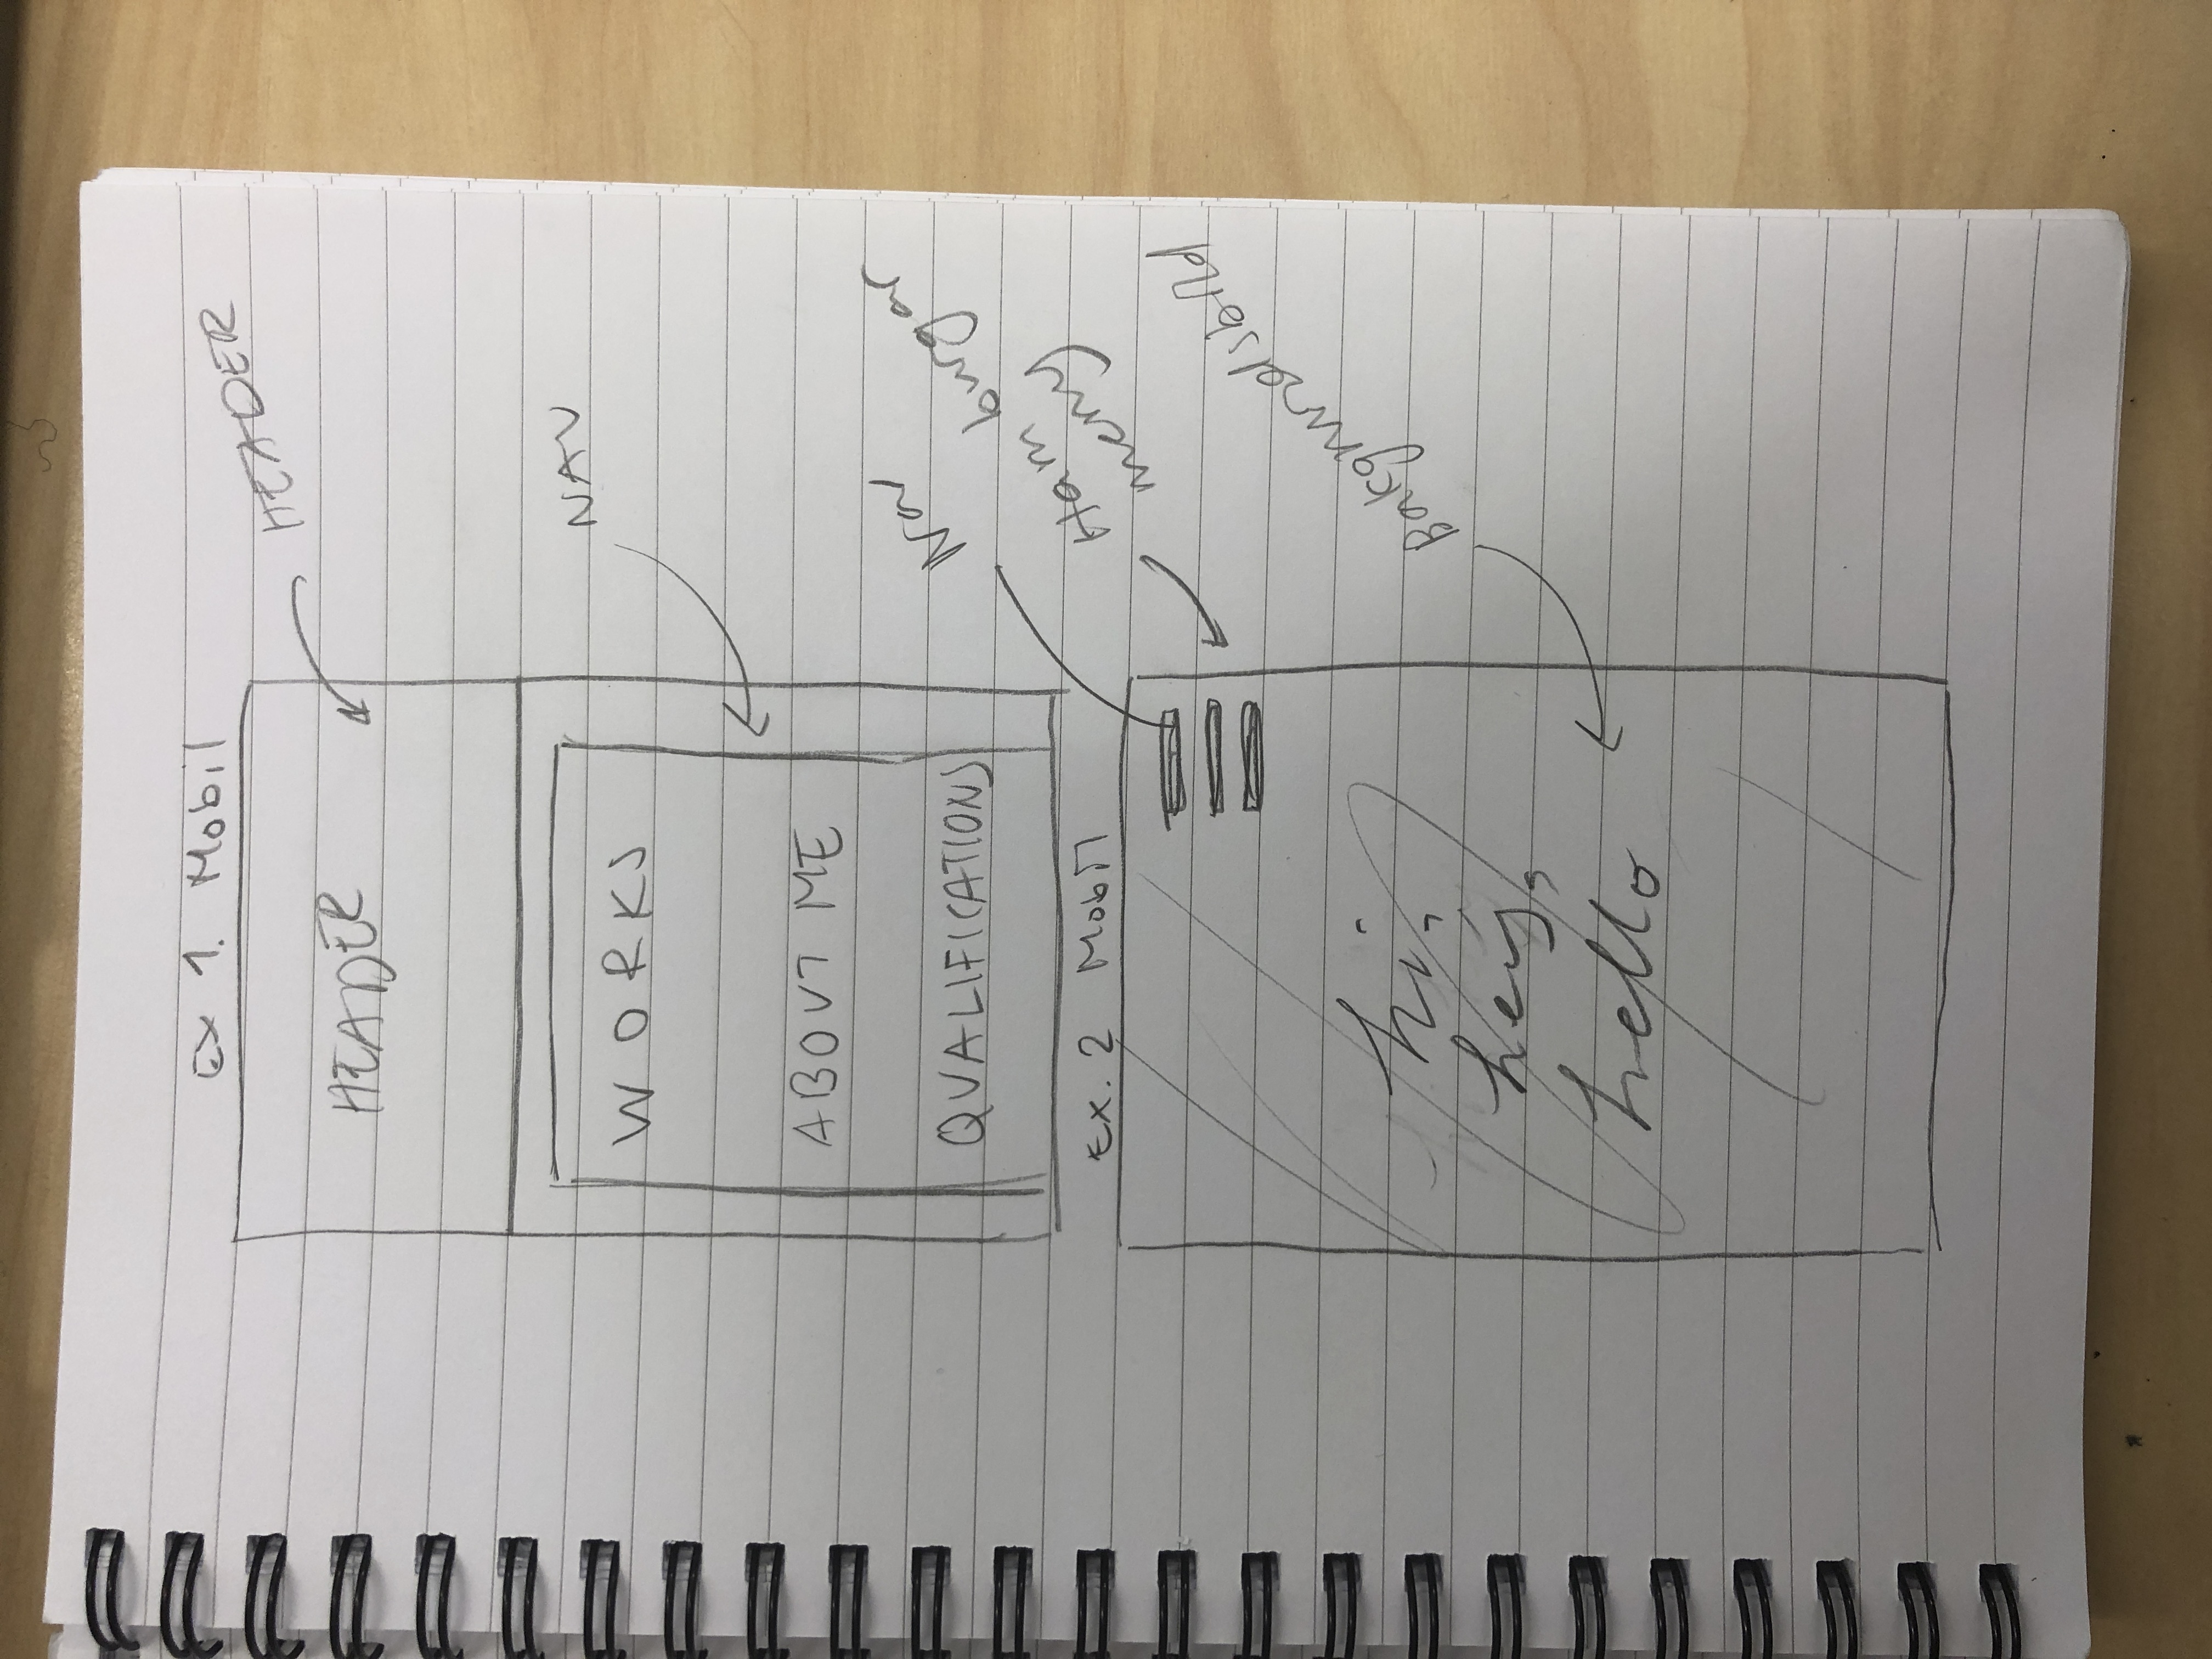 Ex 1. Mobil
HEADER
HEADER
NAV
WORKS
ABOUT ME
QUALIFICATIONS
Ex. 2 Mobil
Nav
Hamburgar
meny
Bakgrundsbild
hi,
hey,
hello